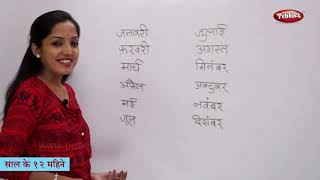 Pebbles
जनवरी
फरवरी
मार्च
अप्रैल
मई
जून
जुलाई
अगस्त
सितंबर
अक्टूबर
नवंबर
दिसंबर
साल के १२ महिने